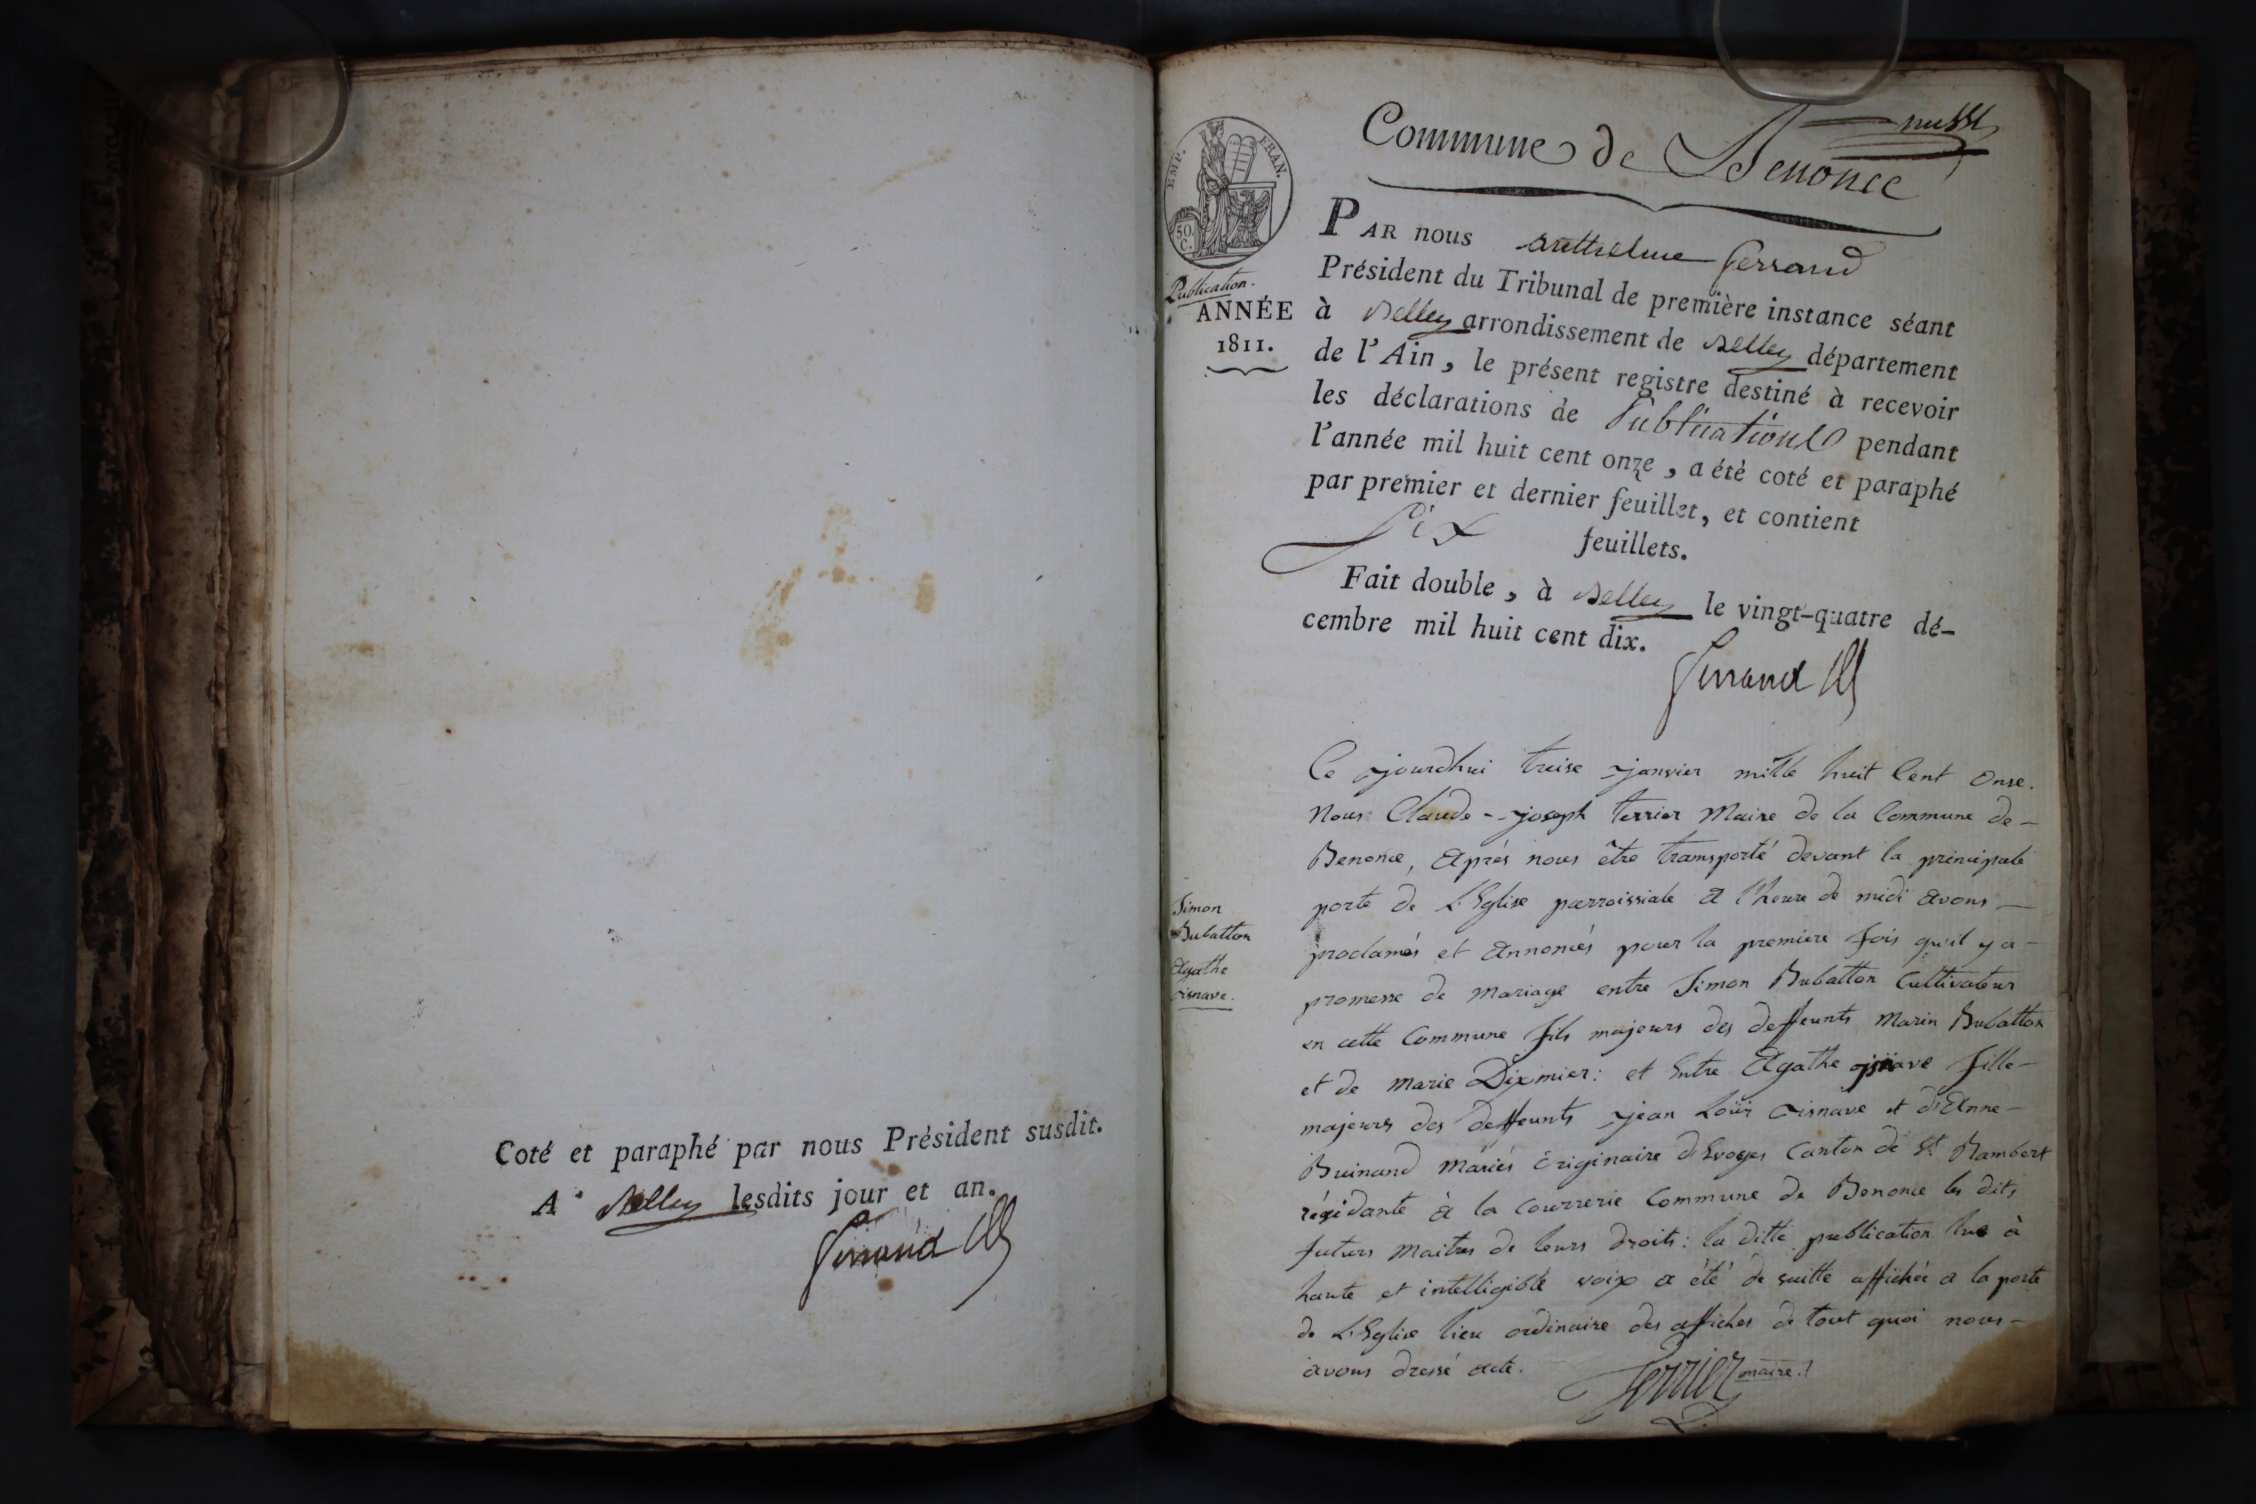 Coté et paraphé par nous Président susdit.
A Belley lesdits jour et an.
Ferrand
Commune de Benonce
EMP. FRAN.
50. C.
Publication.
ANNÉE
1811.
PAR nous Anthelme Ferrand
Président du Tribunal de première instance séant
à Belley arrondissement de Belley département
de l'Ain, le présent registre destiné à recevoir
les déclarations de Publications pendant
l'année mil huit cent onze, a été coté et paraphé
par premier et dernier feuillet, et contient
Six feuillets.
Fait double, à Belley le vingt-quatre dé-
cembre mil huit cent dix.
Ferrand
Ce jourdhui treise janvier mille huit Cent onse.
Nous Claude - joseph terrier Maire de la Commune de -
Benonce, Après nous être transporté devant la principale
porte de L'Eglise parroissiale a l'heure de midi avons -
proclamés et Annoncés pour la premiere fois qu'il y a -
Simon
Bubatton
Agathe
promesse de Mariage entre Simon Bubatton Cultivateur
en cette Commune fils majeurs des deffeunts Marin Bubatton
et de Marie Dixmier : et Entre Agathe fille -
majeurs des deffeunts jean Loüis et d'Anne -
Buinand Mariés originaire d'Evoges Canton de St Rambert
résidante à la Courrerie Commune de Benonce les dits
futurs Maitres de leurs droits : la ditte publication lue à
haute et intelligible voix a été de suitte affichée a la porte
de L'Eglise lieu ordinaire des affiches de tout quoi nous -
avons dressé acte.
Terrier maire.